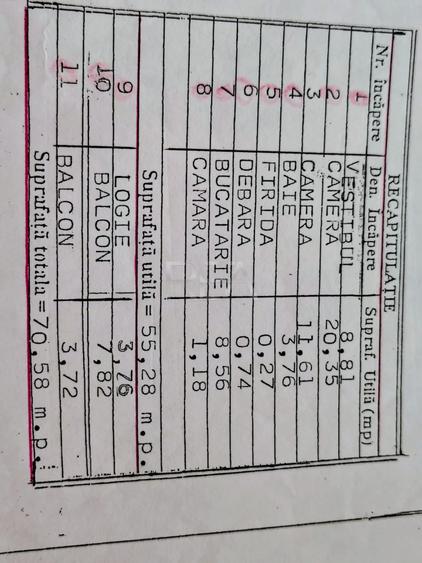 RECAPITULAȚIE
Nr. încăpere Den. Încăpere Supraf. Utilă (mp)
1 VESTIBUL 8,81
2 CAMERA 20,35
3 CAMERA 11,61
4 BAIE 3,76
5 FIRIDA 0,27
6 DEBARA 0,74
7 BUCATARIE 8,56
8 CAMARA 1,18
Suprafață utilă = 55,28 m.p.
9 LOGIE 3,76
10 BALCON 7,82
11 BALCON 3,72
Suprafață totala = 70,58 m.p.